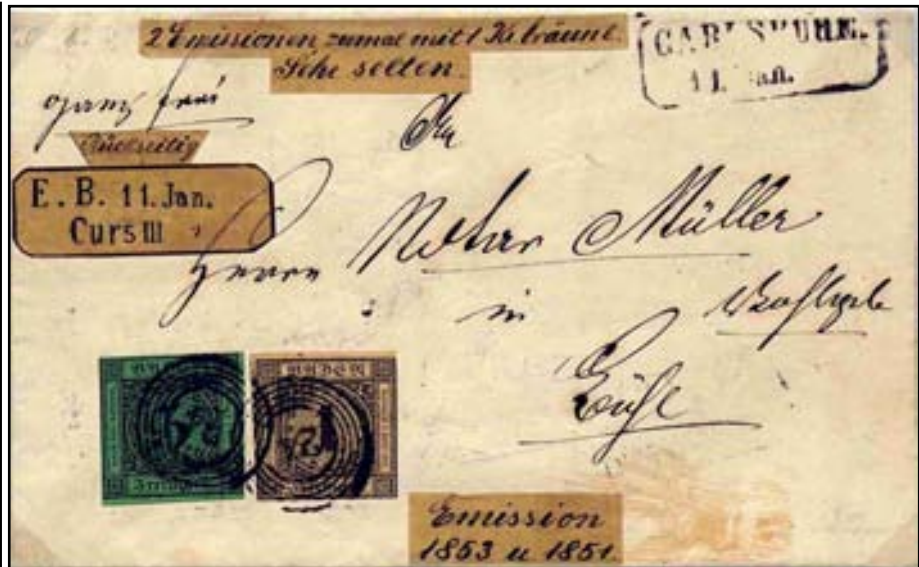 2 Emissionen zumal mit 1 Kr bräunl.
Sehr selten.
CARLSRUHE.
11 Jan.
ganz frei
Rückseitig
An
E. B. 11. Jan.
Curs III
Herrn Notar Müller
in
Bühl
BADEN
BADEN
24
24
Emission
1853 u 1851.